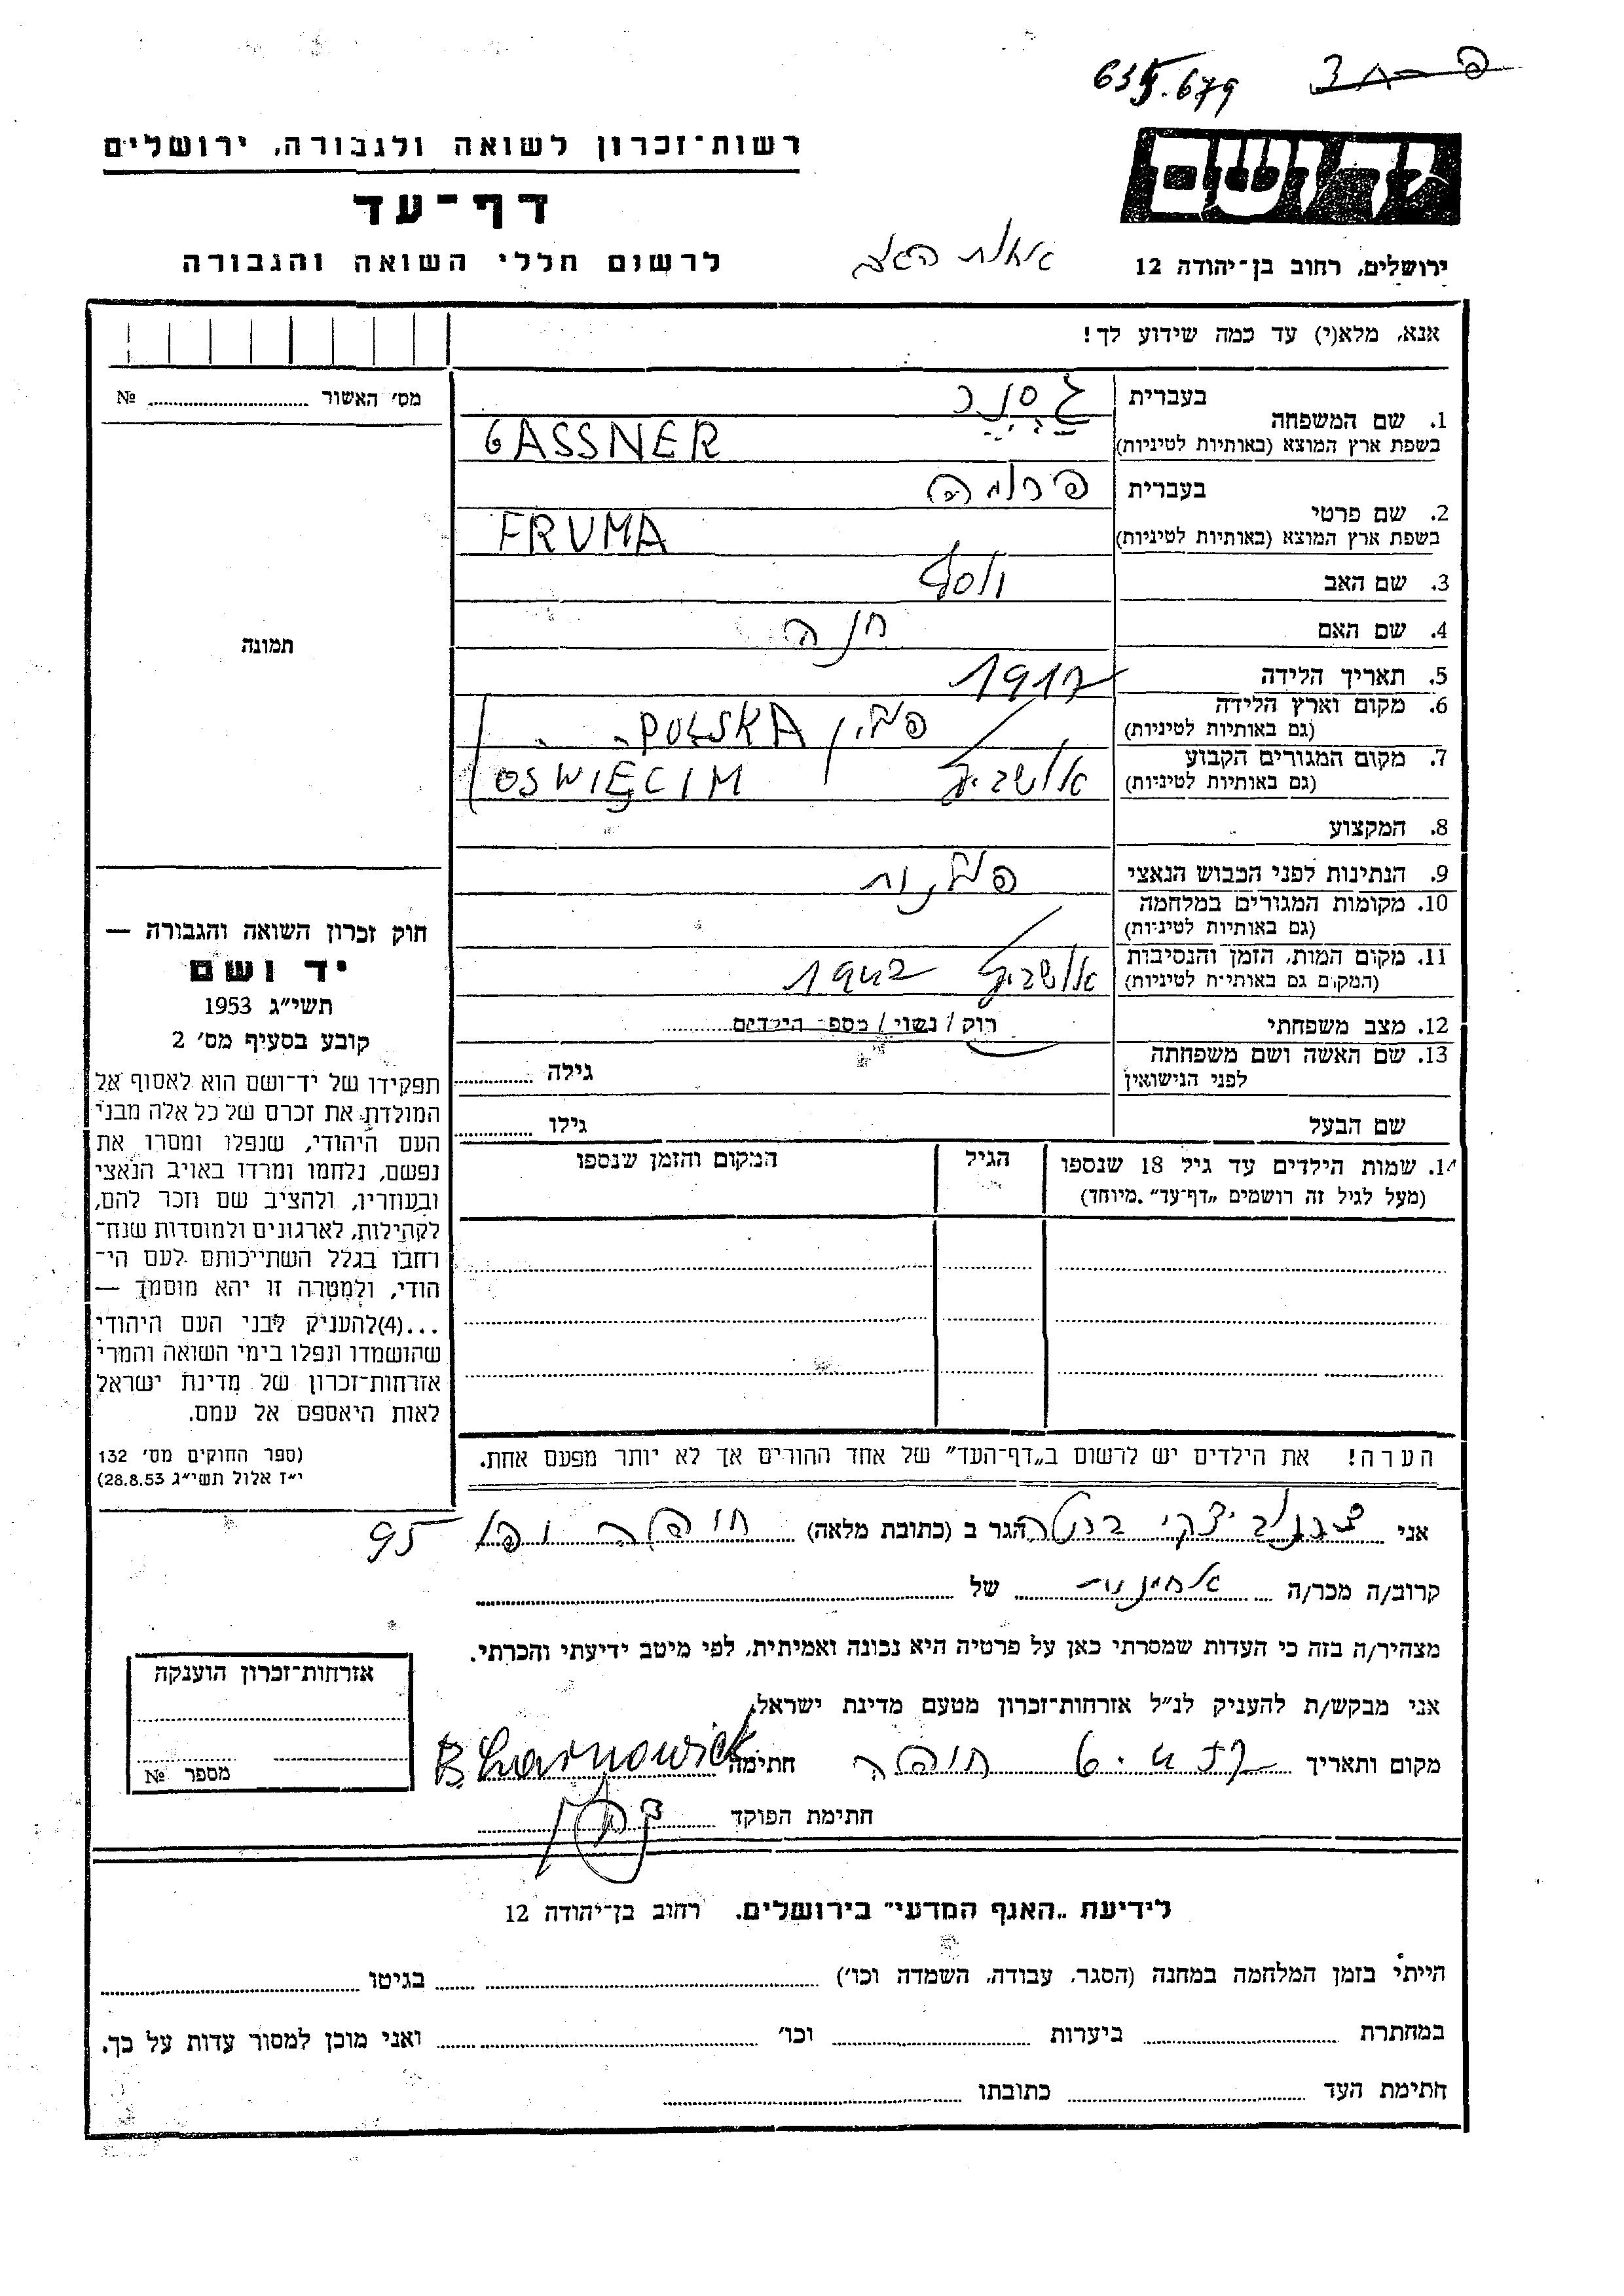 635.679
רשות־זכרון לשואה ולגבורה, ירושלים
ידושם
דף־עד
לרשום חללי השואה והגבורה
ירושלים, רחוב בן־יהודה 12
אנא, מלא(י) עד כמה שידוע לך!
מס׳ האשור № 
1. שם המשפחה
בעברית גסנר
בשפת ארץ המוצא (באותיות לטיניות) GASSNER
2. שם פרטי
בעברית פרומה
בשפת ארץ המוצא (באותיות לטיניות) FRUMA
3. שם האב יוסף
4. שם האם חנה
תמונה
5. תאריך הלידה 1917
6. מקום וארץ הלידה
(גם באותיות לטיניות) פולין POLSKA
7. מקום המגורים הקבוע
(גם באותיות לטיניות) אושביץ OSWIĘCIM
8. המקצוע
9. הנתינות לפני הכבוש הנאצי פולנית
10. מקומות המגורים במלחמה
(גם באותיות לטיניות)
11. מקום המות, הזמן והנסיבות
(המקום גם באותיות לטיניות) אושביץ 1942
12. מצב משפחתי רוק / נשוי / מספר הילדים
13. שם האשה ושם משפחתה
לפני הנישואין גילה
שם הבעל גילו
חוק זכרון השואה והגבורה —
יד ושם
תשי״ג 1953
קובע בסעיף מס׳ 2
תפקידו של יד־ושם הוא לאסוף אל
המולדת את זכרם של כל אלה מבני
העם היהודי, שנפלו ומסרו את
נפשם, נלחמו ומרדו באויב הנאצי
ובעוזריו, ולהציב שם וזכר להם,
לקהילות, לארגונים ולמוסדות שנח־
רחבו בגלל השתייכותם לעם הי־
הודי, ולמטרה זו יהא מוסמך —
...(4)להעניק לבני העם היהודי
שהושמדו ונפלו בימי השואה והמרי
אזרחות־זכרון של מדינת ישראל
לאות היאספם אל עמם.
(ספר החוקים מס׳ 132
י״ז אלול תשי״ג 28.8.53)
14. שמות הילדים עד גיל 18 שנספו הגיל המקום והזמן שנספו
(מעל לגיל זה רושמים „דף־עד״ .מיוחד)
הערה! את הילדים יש לרשום ב„דף־העד״ של אחד ההורים אך לא יותר מפעם אחת.
אני ברטה הגר ב (כתובת מלאה) חיפה 95
קרוב/ה מכר/ה אחינית של
מצהיר/ה בזה כי העדות שמסרתי כאן על פרטיה היא נכונה ואמיתית, לפי מיטב ידיעתי והכרתי.
אני מבקש/ת להעניק לנ״ל אזרחות־זכרון מטעם מדינת ישראל.
מקום ותאריך חיפה חתימה
חתימת הפוקד
אזרחות־זכרון הוענקה
מספר №
לידיעת „האגף המדעי״ בירושלים. רחוב בן־יהודה 12
הייתי בזמן המלחמה במחנה (הסגר, עבודה, השמדה וכו׳) בגיטו
במחתרת ביערות וכו׳ ואני מוכן למסור עדות על כך.
חתימת העד כתובתו